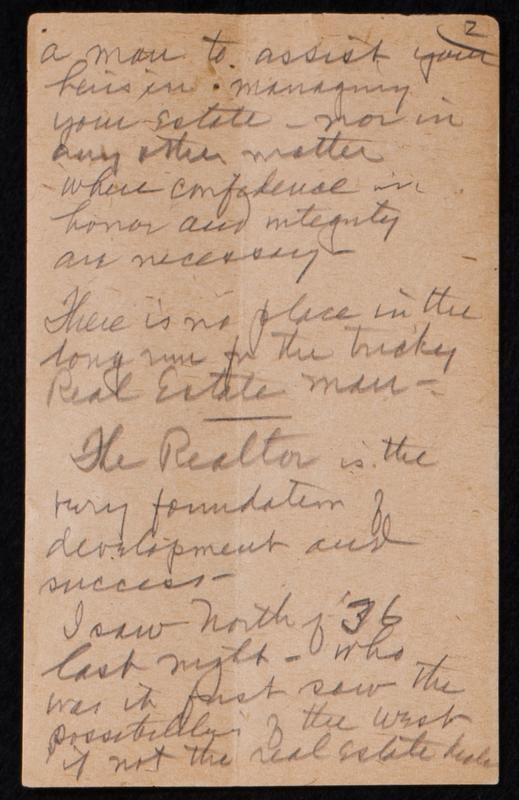 2
a man to assist your
heirs in managing
your Estate - nor in
any other matter
where confidence in
honor and integrity
are necessary -
There is no place in the
long run for the tricky
Real Estate man -
The Realtor is the
very foundation of
development and
success -
I saw North of '36
last night - who
was it first saw the
possibilities of the west
if not the real estate dealer